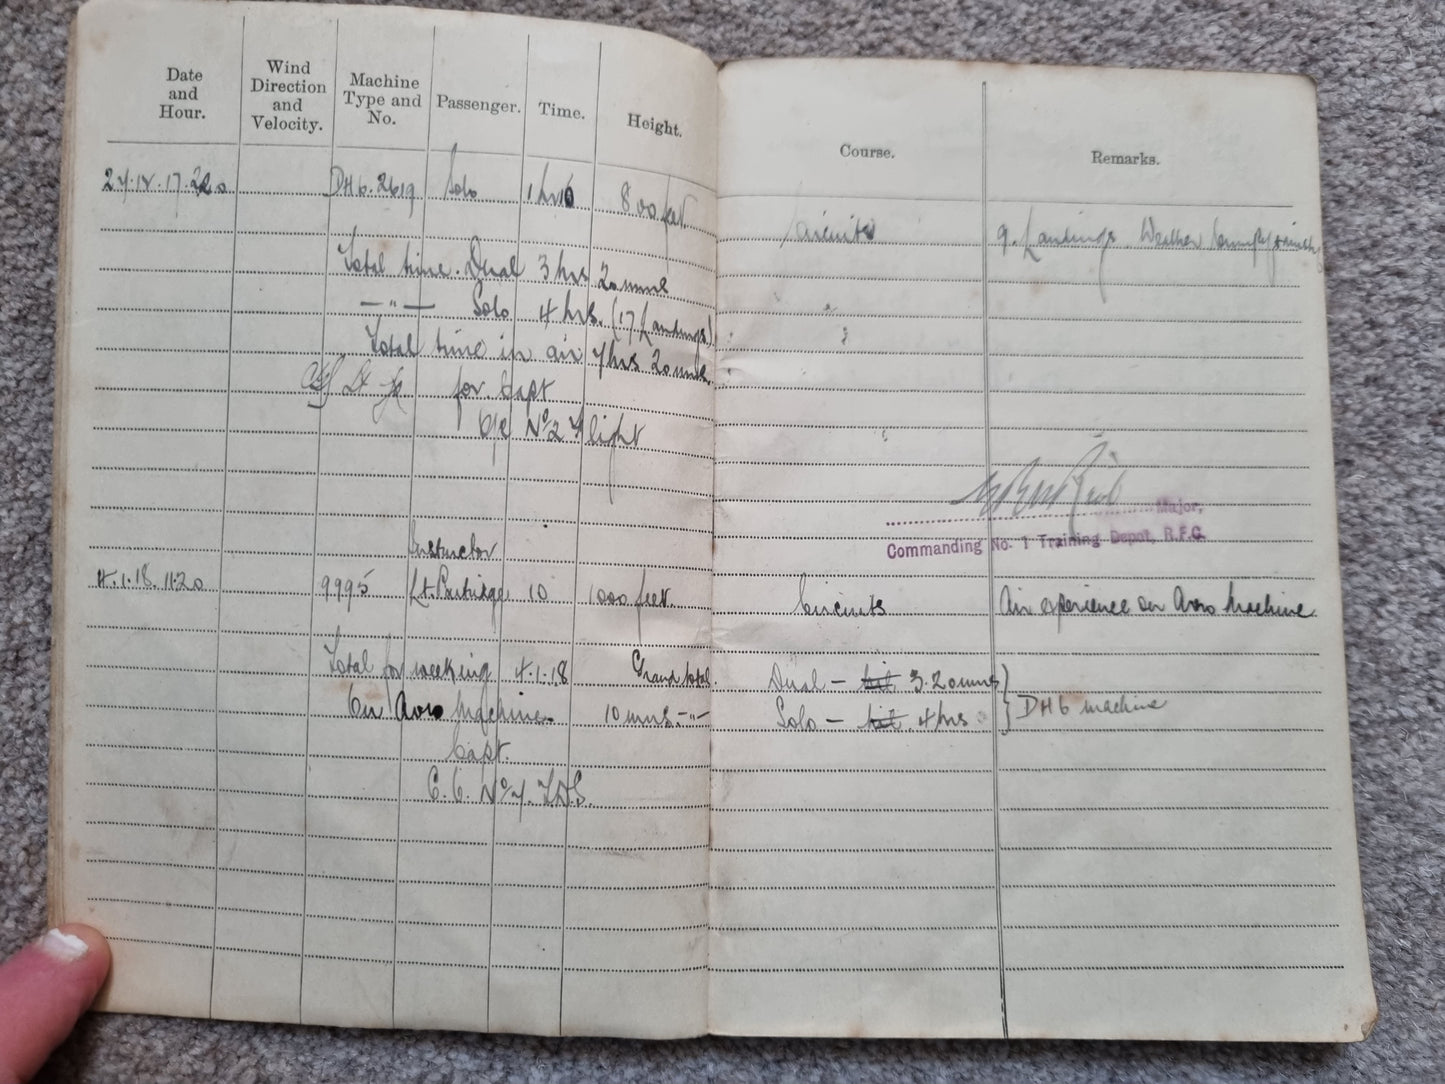 Date and Hour. Wind Direction and Velocity. Machine Type and No. Passenger. Time. Height. Course. Remarks.
DH6.2619 Solo 1 hr 800 feet Circuits 9. Landings. Weather
Total time. Dual 3 hrs 20 mns
—"— Solo 4 hrs. (17 Landings)
Total time in air 7 hrs 20 mns.
for Capt
O/C No 2 Flight
Major,
Commanding No. 1 Training Depot, R.F.C.
Instructor
4.1.18. 11.20 9995 Lt. Partridge 10 1000 feet. Circuits Air experience on Avro Machine.
Total for week ing 4.1.18 Grand total. Dual — 3.20 mns
On Avro Machine. 10 mns —"— Solo — 4 hrs DH6 machine
Capt.
No 7. T.D.S.